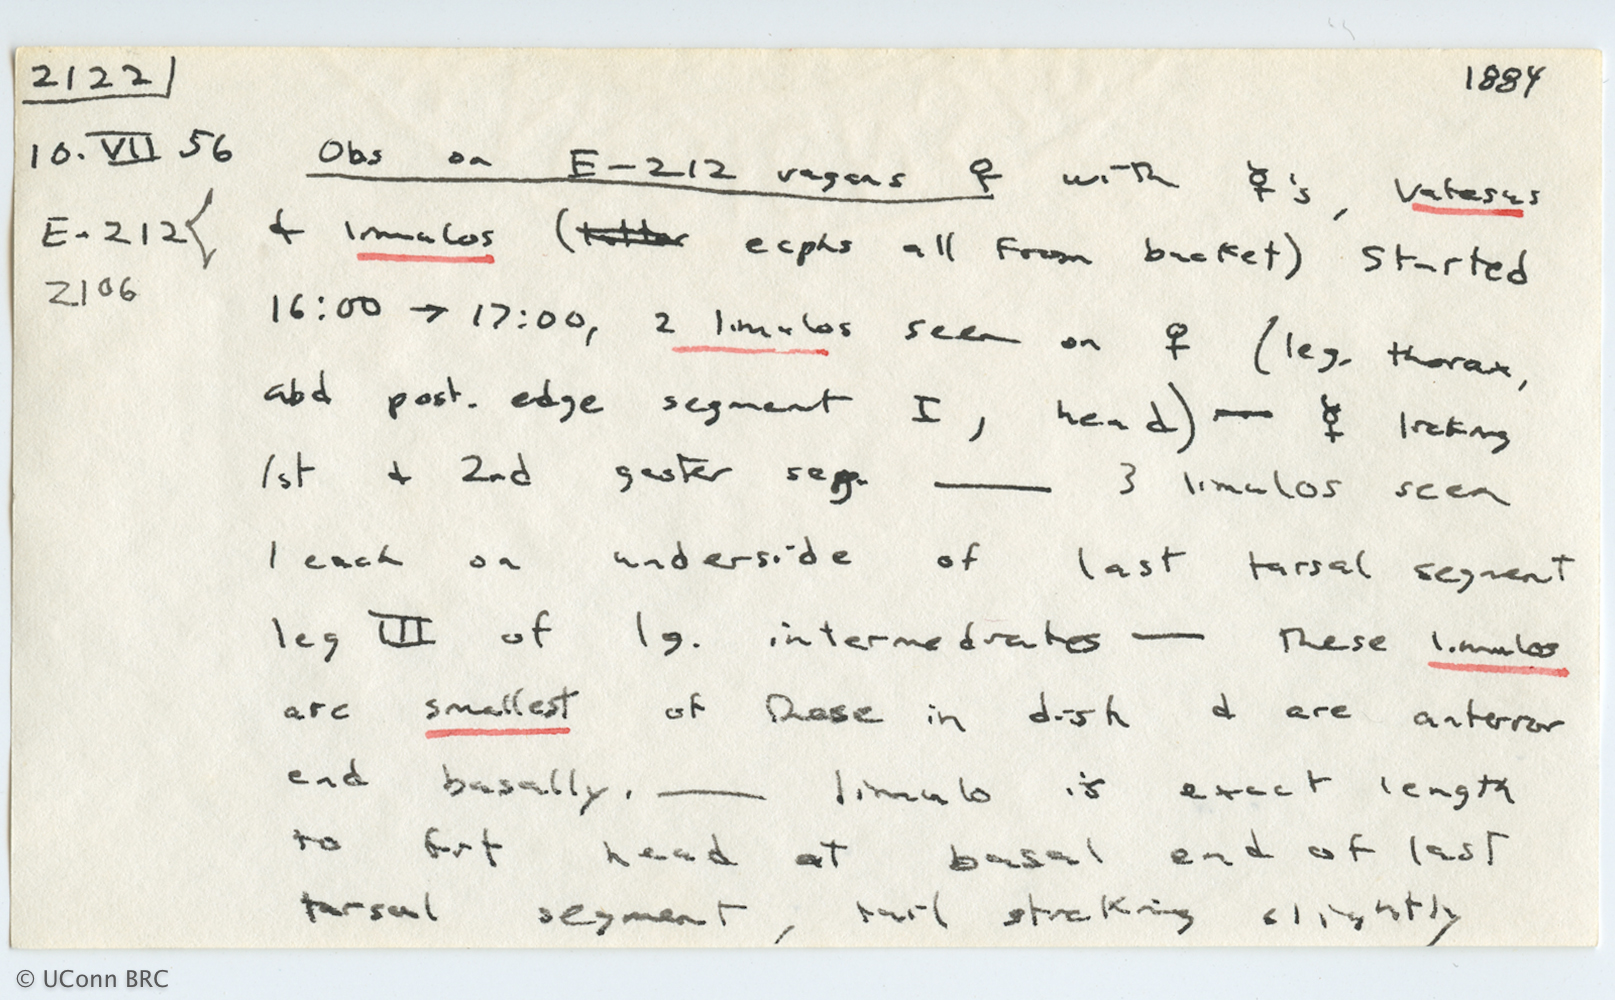 2122
1884
10. VII 56 Obs on E-212 vagans ♀ with ☿'s, Vatesus
E-212 & limulos (ecphs all from bucket) Started
2106
16:00 → 17:00, 2 limulos seen on ♀ (leg. thorax,
abd post. edge segment I, head) — ☿ licking
1st & 2nd gaster seg. — 3 limulos seen
1 each on underside of last tarsal segment
leg III of lg. intermediates — These limulos
are smallest of those in dish & are anterior
end basally. — limulo is exact length
to fit head at basal end of last
tarsal segment, tail sticking slightly
© UConn BRC